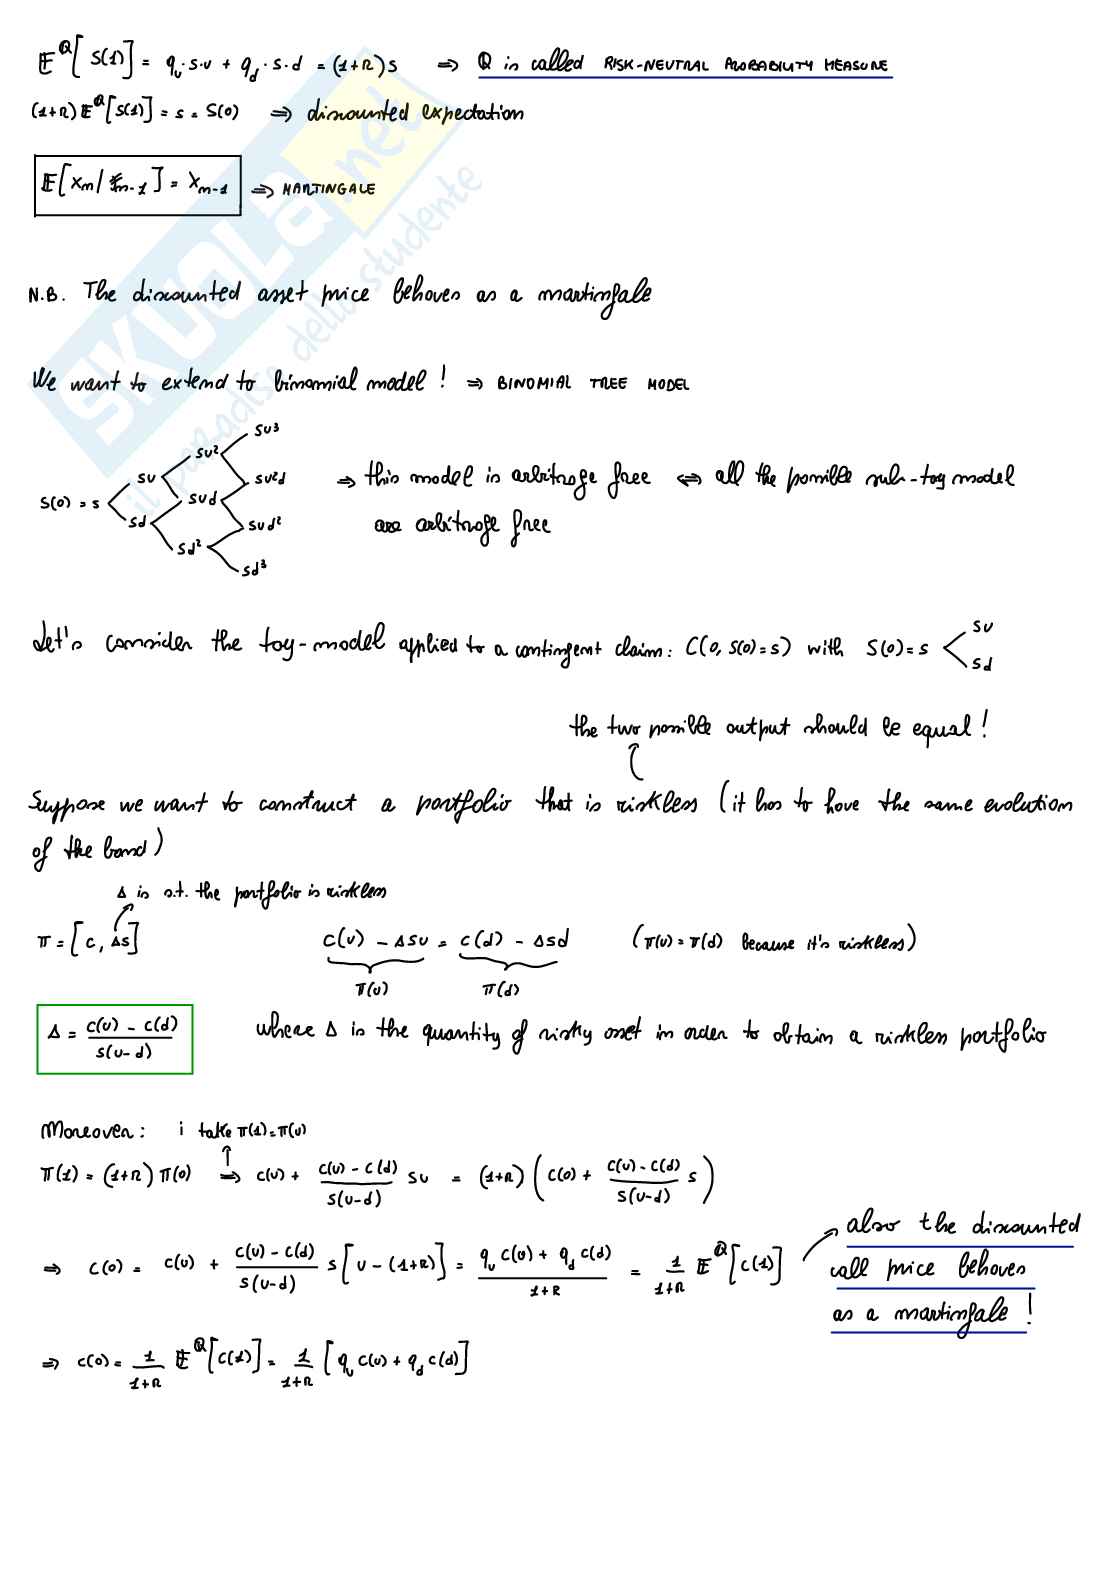 E^Q[S(1)] = q_u·s·u + q_d·s·d = (1+R)s ⇒ Q is called RISK-NEUTRAL PROBABILITY MEASURE
(1+R) E^Q[S(1)] = s = S(0) ⇒ discounted expectation
E[X_m / F_m-1] = X_m-1 ⇒ MARTINGALE
N.B. The discounted asset price behaves as a martingale
We want to extend to binomial model! ⇒ BINOMIAL TREE MODEL
su³
su²
su su²d ⇒ this model is arbitrage free ⇔ all the possible sub-toy model
S(0) = s sud
sd sud² are arbitrage free
sd²
sd³
Let's consider the toy-model applied to a contingent claim: C(0, S(0)=s) with S(0)=s su
sd
the two possible output should be equal!
Suppose we want to construct a portfolio that is riskless (it has to have the same evolution
of the bond)
Δ is s.t. the portfolio is riskless
π = [c, Δs] c(u) - Δsu = c(d) - Δsd (π(u) = π(d) because it's riskless)
π(u) π(d)
Δ = c(u) - c(d) / s(u-d) where Δ is the quantity of risky asset in order to obtain a riskless portfolio
Moreover: i take π(1)=π(u)
π(1) = (1+R) π(0) ⇒ c(u) + c(u) - c(d) / s(u-d) su = (1+R) ( c(0) + c(u) - c(d) / s(u-d) s )
⇒ c(0) = c(u) + c(u) - c(d) / s(u-d) s [u - (1+R)] = q_u c(u) + q_d c(d) / 1+R = 1 / 1+R E^Q[c(1)] also the discounted
call price behaves
as a martingale!
⇒ c(0) = 1 / 1+R E^Q[c(1)] = 1 / 1+R [q_u c(u) + q_d c(d)]
SKUOLA.net
il paradiso dello studente